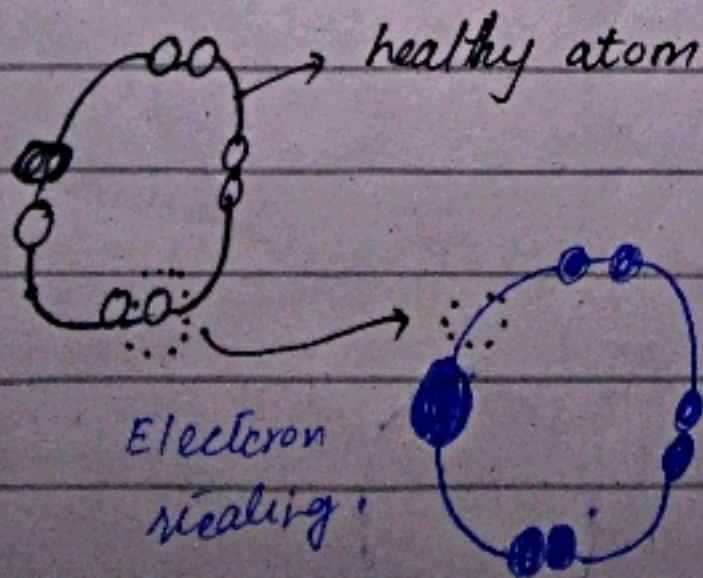 healthy atom
Electron
stealing.